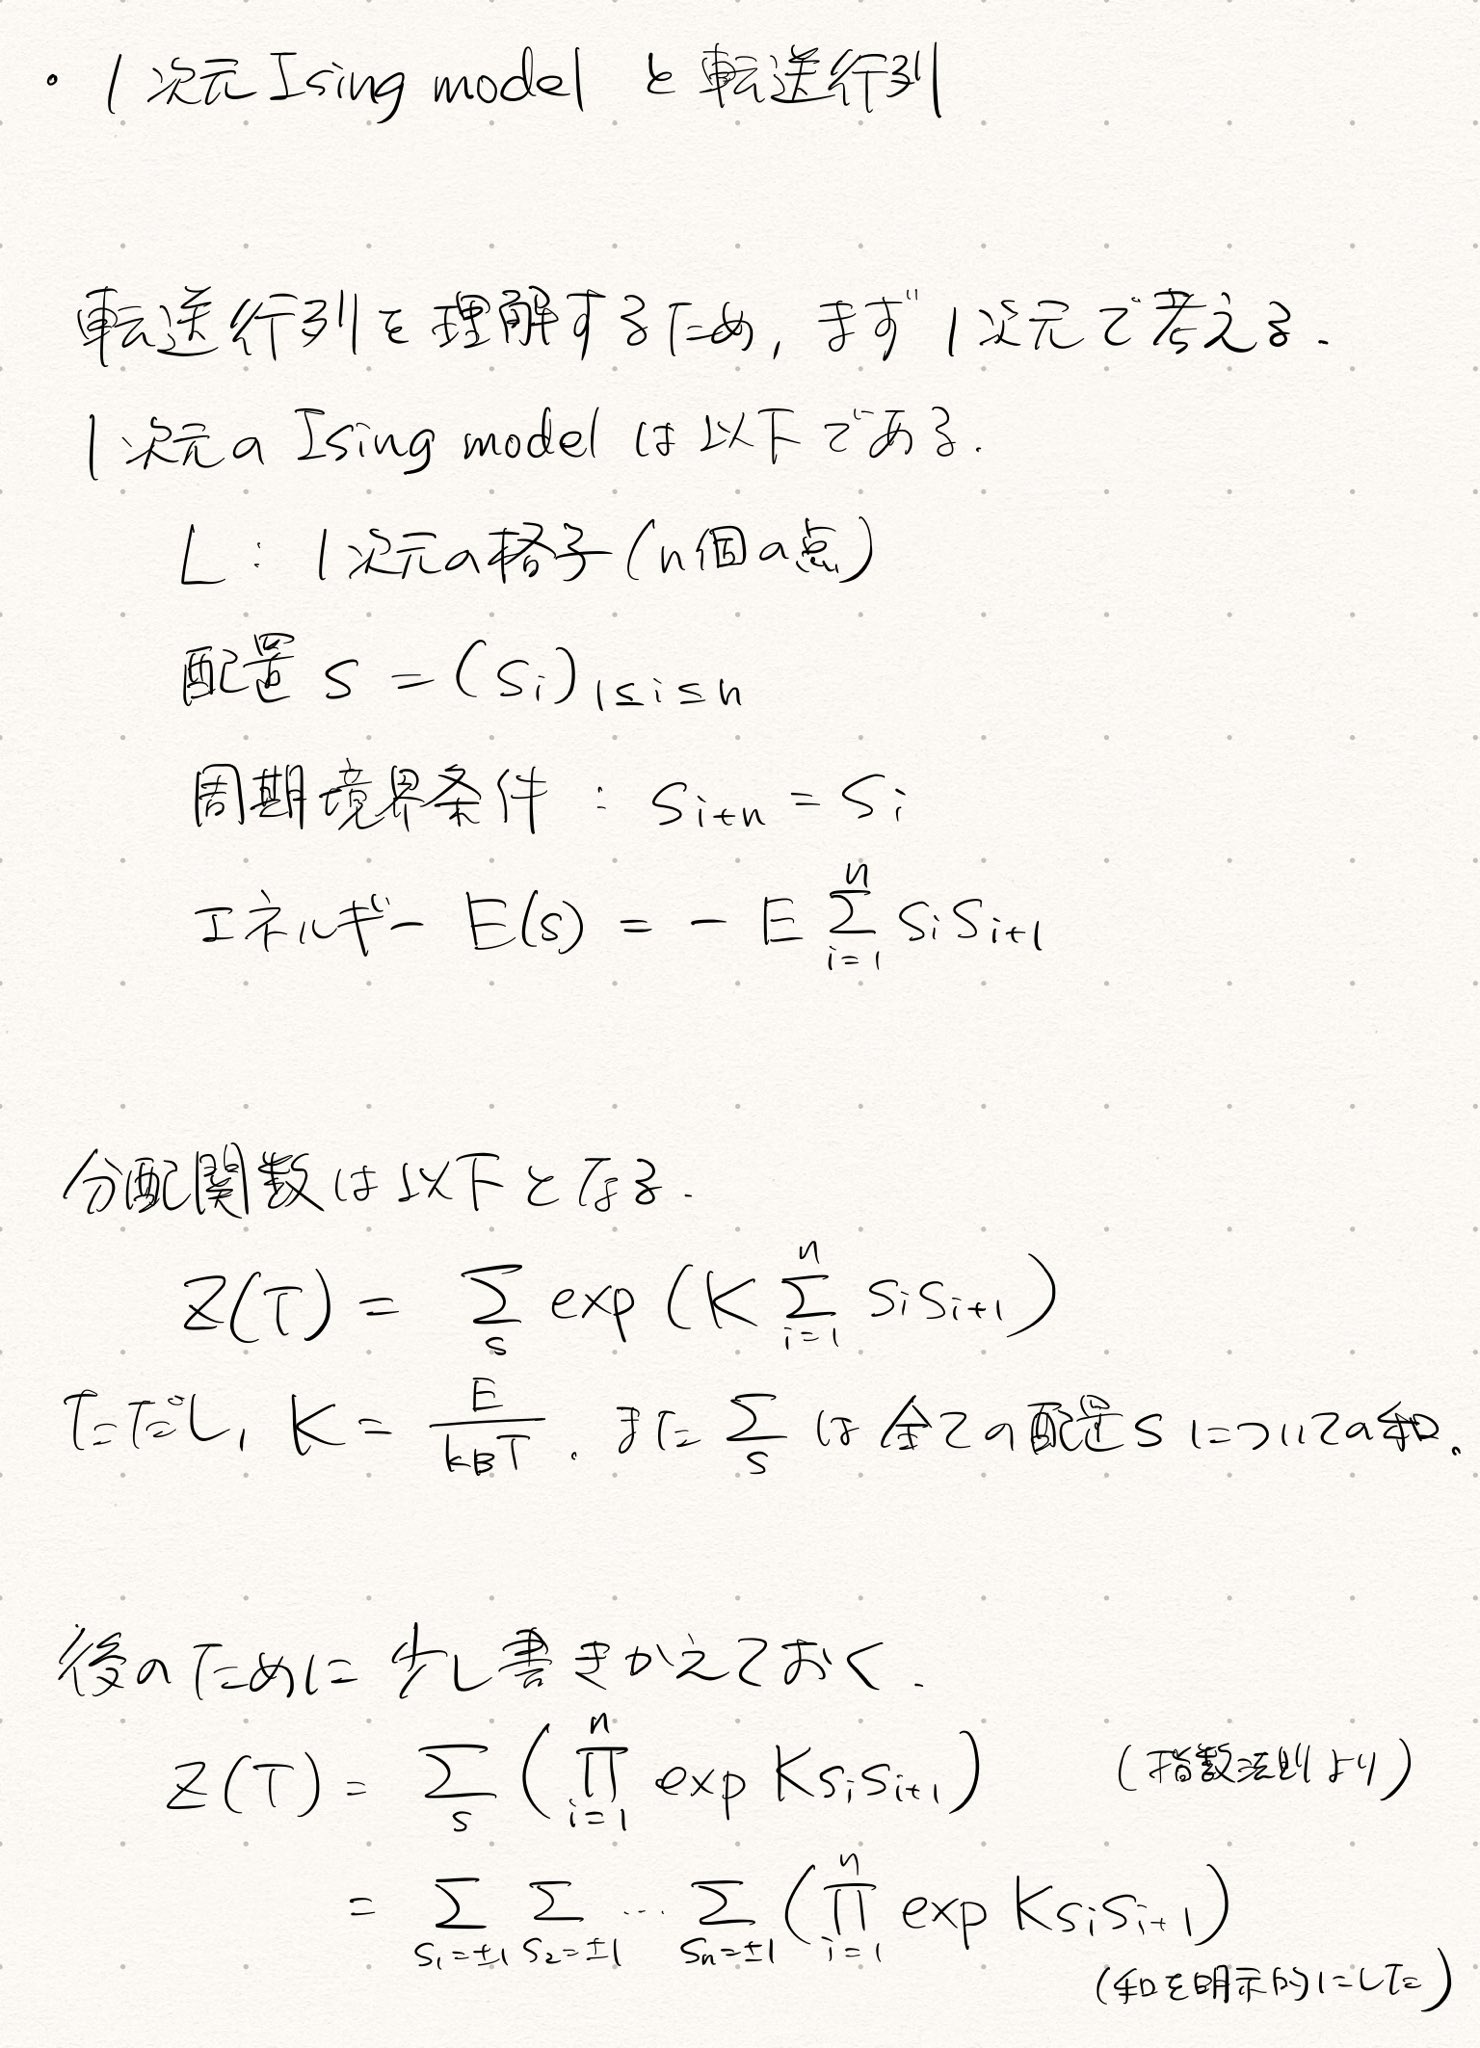 ・1次元 Ising model と転送行列
転送行列を理解するため, まず1次元で考える.
1次元の Ising model は以下である.
L : 1次元の格子 (n個の点)
配置 s = (s_i)_{1≤i≤n}
周期境界条件 : s_{i+n} = s_i
エネルギー E(s) = - E \sum_{i=1}^{n} s_i s_{i+1}
分配関数は以下となる.
Z(T) = \sum_{s} exp (K \sum_{i=1}^{n} s_i s_{i+1})
ただし, K = \frac{E}{k_B T} . また \sum_{s} は全ての配置sについての和.
後のために少し書きかえておく.
Z(T) = \sum_{s} ( \prod_{i=1}^{n} exp K s_i s_{i+1} ) (指数法則より)
= \sum_{s_1=±1} \sum_{s_2=±1} … \sum_{s_n=±1} ( \prod_{i=1}^{n} exp K s_i s_{i+1} )
(和を明示的にした)